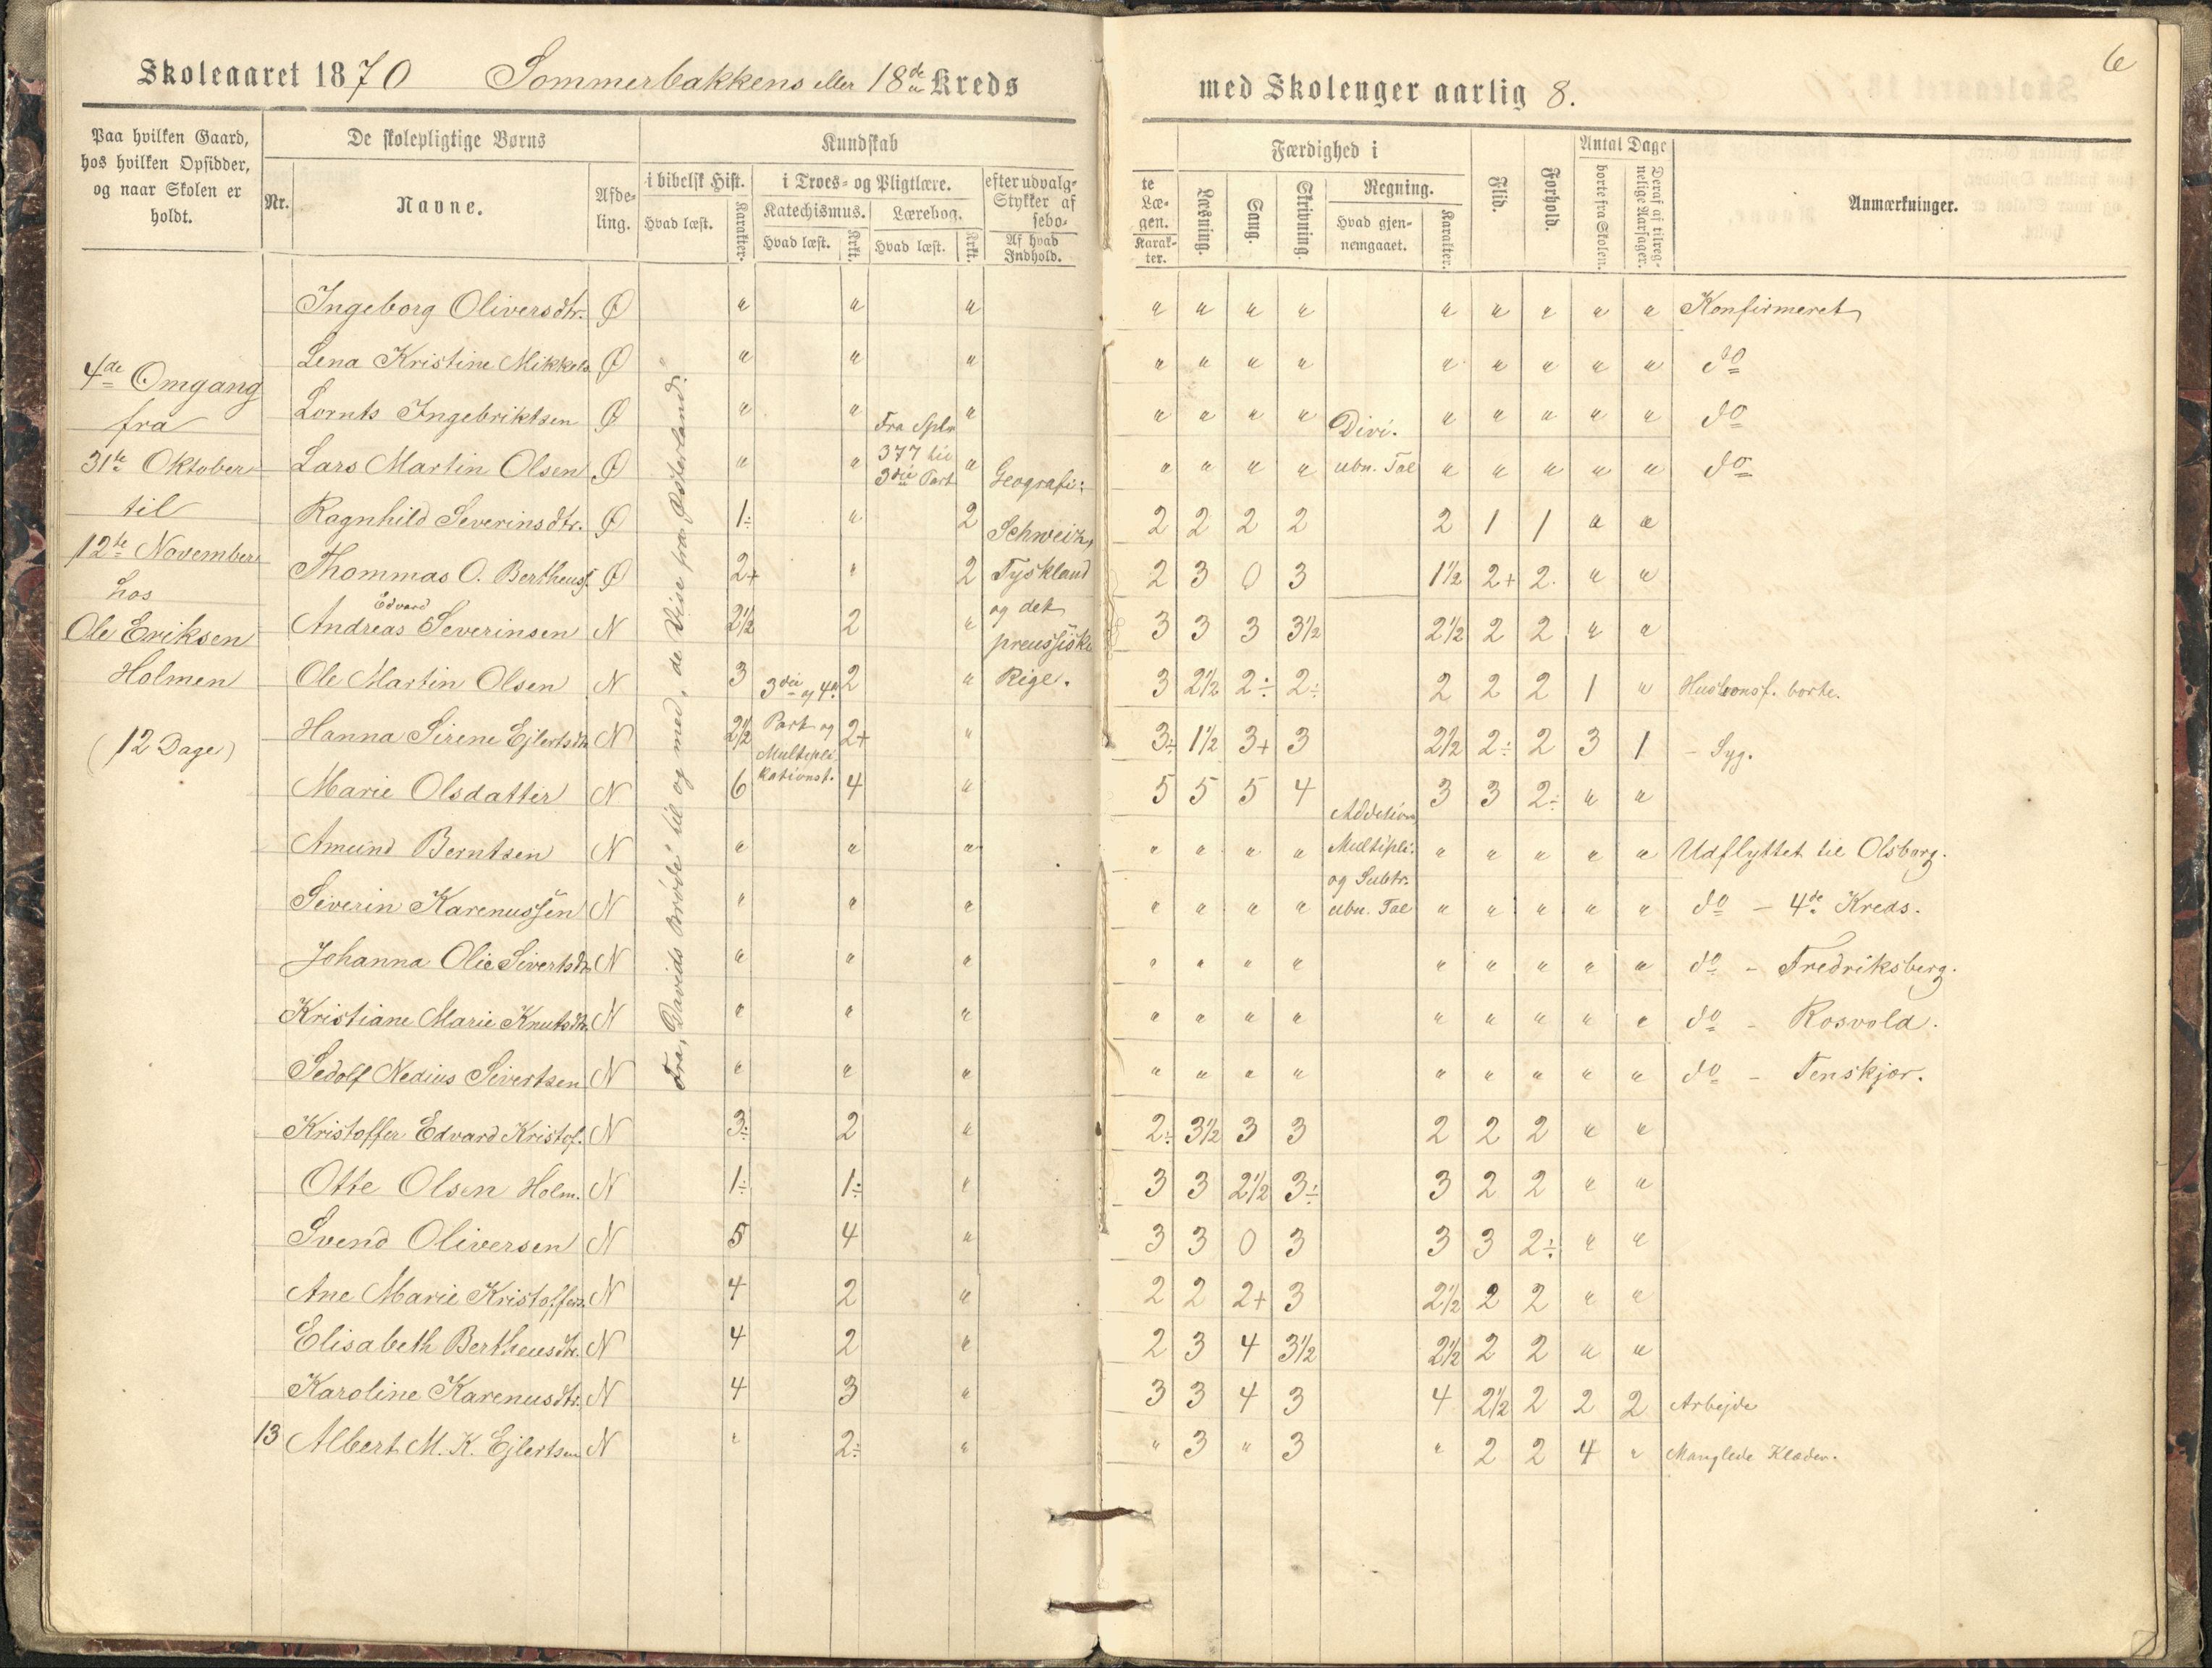 Skoleaaret 1870 Sommerbakkens eller 18de Kreds
med Skolenger aarlig 8.
6
Paa hvilken Gaard,
hos hvilken Opsidder,
og naar Skolen er
holdt.
De skolepligtige Børns
Nr.
Navne.
Afde-
ling.
Kundskab
i bibelsk Hist.
Hvad læst.
Karakter.
i Troes- og Pligtlære.
Katechismus.
Hvad læst.
Krkt.
Lærebog.
Hvad læst.
Krkt.
efter udvalg-
Stykker af
sebo-
Af hvad
Indhold.
te
Læ-
gen.
Karak-
ter.
Færdighed i
Læsning.
Sang.
Skrivning.
Regning.
Hvad gjen-
nemgaaet.
Karakter.
Flid.
Forhold.
Antal Dage
borte fra Skolen.
Deraf af tilreg-
nelige Aarsager.
Anmærkninger.
4de Omgang
fra
31te Oktober
til
12te November
hos
Ole Eriksen
Holmen
(12 Dage)
Fra „Davids Brøde" til og med „de Vise fra Østerland."
Fra SpLr
377 til
3die Part
3die og 4de
Part og
Multipli
kationst.
Geografi:
Schweiz,
Tyskland
og det
preussiske
Rige.
Divi.
ubn. Tal
Addition,
Multipli:
og Subtr.
ubn. Tal
Ingeborg Oliversdtr. Ø " " " " " " " " " " " " Konfirmeret
Lena Kristine Mikkels Ø " " " " " " " " " " " " do
Lornts Ingebriktsen Ø " " " " " " " " " " " " do
Lars Martin Olsen Ø " " " " " " " " " " " " do
Ragnhild Severinsdtr. Ø 1÷ " 2 2 2 2 2 2 1 1 " "
Thommas O. Bertheuss. Ø 2+ " 2 2 3 0 3 1½ 2+ 2 " "
Edvard
Andreas Severinsen N 2½ 2 " 3 3 3 3½ 2½ 2 2 " "
Ole Martin Olsen N 3 2 " 3 2½ 2÷ 2÷ 2 2 2 1 " Husbonsf. borte.
Hanna Sirene Ejlertsdtr N 2½ 2+ " 3÷ 1½ 3+ 3 2½ 2÷ 2 3 1 – Syg.
Marie Olsdatter N 6 4 " 5 5 5 4 3 3 2÷ " "
Amund Berntsen N " " " " " " " " " " " " Udflyttet til Olsborg.
Severin Karenussen N " " " " " " " " " " " " do – 4de Kreds.
Johanna Olie Sivertsdtr N " " " " " " " " " " " " do – Fredriksberg.
Kristiane Marie Knutsdtr. N " " " " " " " " " " " " do – Rosvold.
Sedolf Nedius Sivertsen N " " " " " " " " " " " " do – Tenskjær.
Kristoffer Edvard Kristof. N 3÷ 2 " 2÷ 3½ 3 3 2 2 2 " "
Otte Olsen Holm. N 1÷ 1÷ " 3 3 2½ 3÷ 3 2 2 " "
Svend Oliversen N 5 4 " 3 3 0 3 3 3 2÷ " "
Ane Marie Kristoffers. N 4 2 " 2 2 2+ 3 2½ 2 2 " "
Elisabeth Bertheusdtr. N 4 2 " 2 3 4 3½ 2½ 2 2 " "
Karoline Karenusdtr. N 4 3 " 3 3 4 3 4 2½ 2 2 2 Arbejde
13 Albert M. K. Ejlertsen N " 2÷ " " 3 " 3 " 2 2 4 " Manglede Klæder.